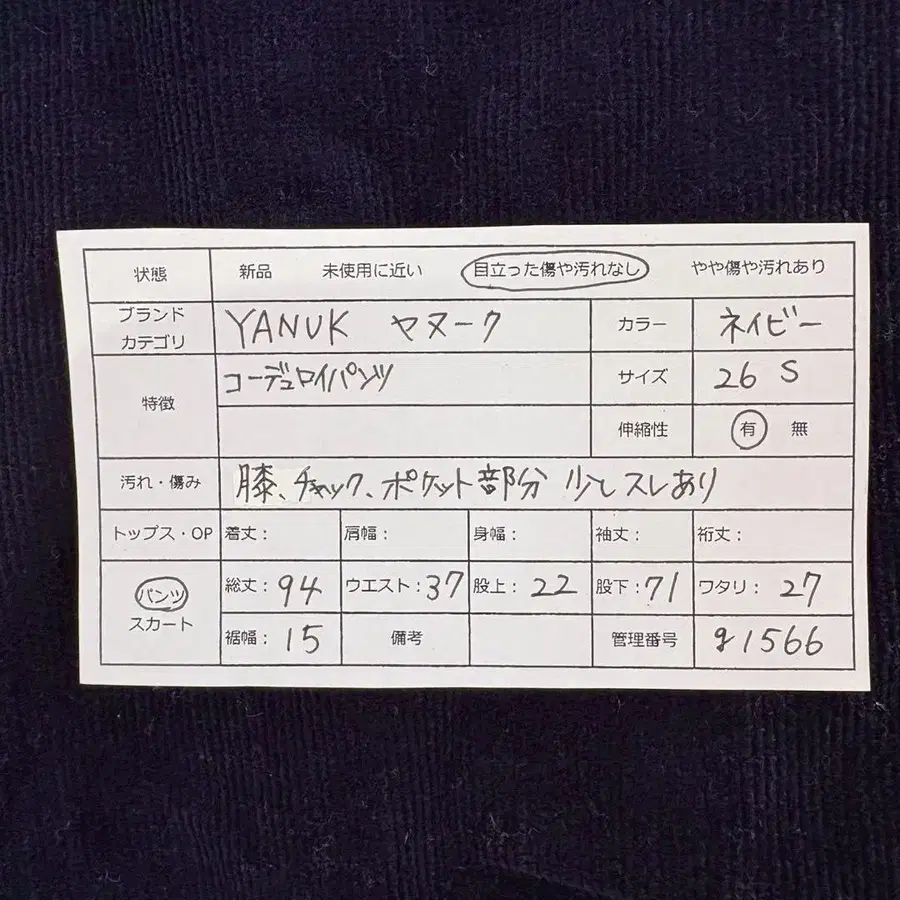 状態 新品 未使用に近い 目立った傷や汚れなし やや傷や汚れあり
ブランド
カテゴリ
YANUK ヤヌーク カラー ネイビー
特徴
コーデュロイパンツ サイズ 26 S
伸縮性 有 無
汚れ・傷み 膝、チャック、ポケット部分 少しスレあり
トップス・OP 着丈： 肩幅： 身幅： 袖丈： 裄丈：
パンツ
スカート
総丈：94 ウエスト：37 股上：22 股下：71 ワタリ：27
裾幅：15 備考 管理番号 g1566